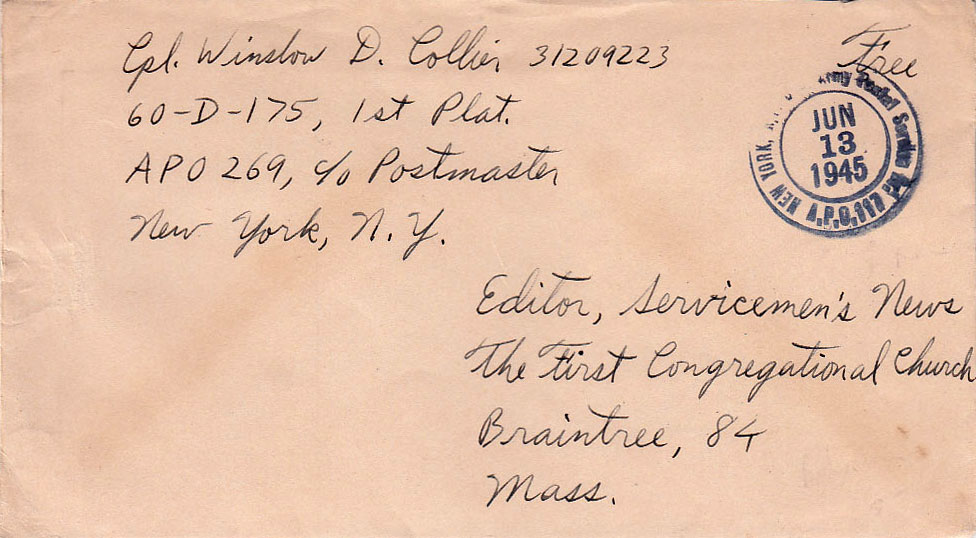 Cpl. Winslow D. Collier 31209223
60-D-175, 1st Plat.
APO 269, c/o Postmaster
New York, N.Y.
Free
Army Postal Service
NEW YORK,
A.P.O. 117
JUN
13
1945
Editor, Servicemen's News
The First Congregational Church
Braintree, 84
Mass.